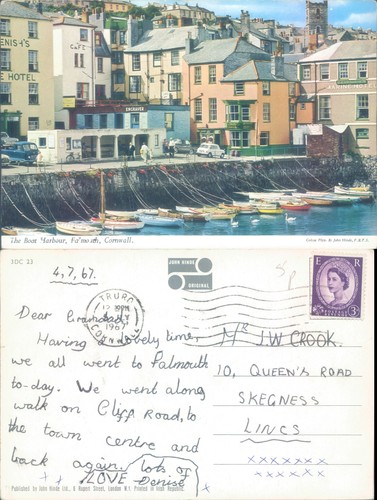 ENISH'S
CAFE
HOTEL
The Boat Harbour, Falmouth, Cornwall.
Colour Photo by John Hinde, F.R.P.S.
2DC 23
4.7.67.
JOHN HINDE
ORIGINAL
TRURO
1967
CORNWALL
E R
3D
Dear Grandad,
Having a lovely time,
we all went to Falmouth
to-day. We went along
walk on Cliff Road, to
the town centre and
back again. Lots of
LOVE Denise
MR J.W CROOK.
10, QUEEN'S ROAD
SKEGNESS
LINCS
xxxxxxx
xxxxxx
Published by John Hinde Ltd., 6 Rupert Street, London W.1. Printed in Irish Republic.